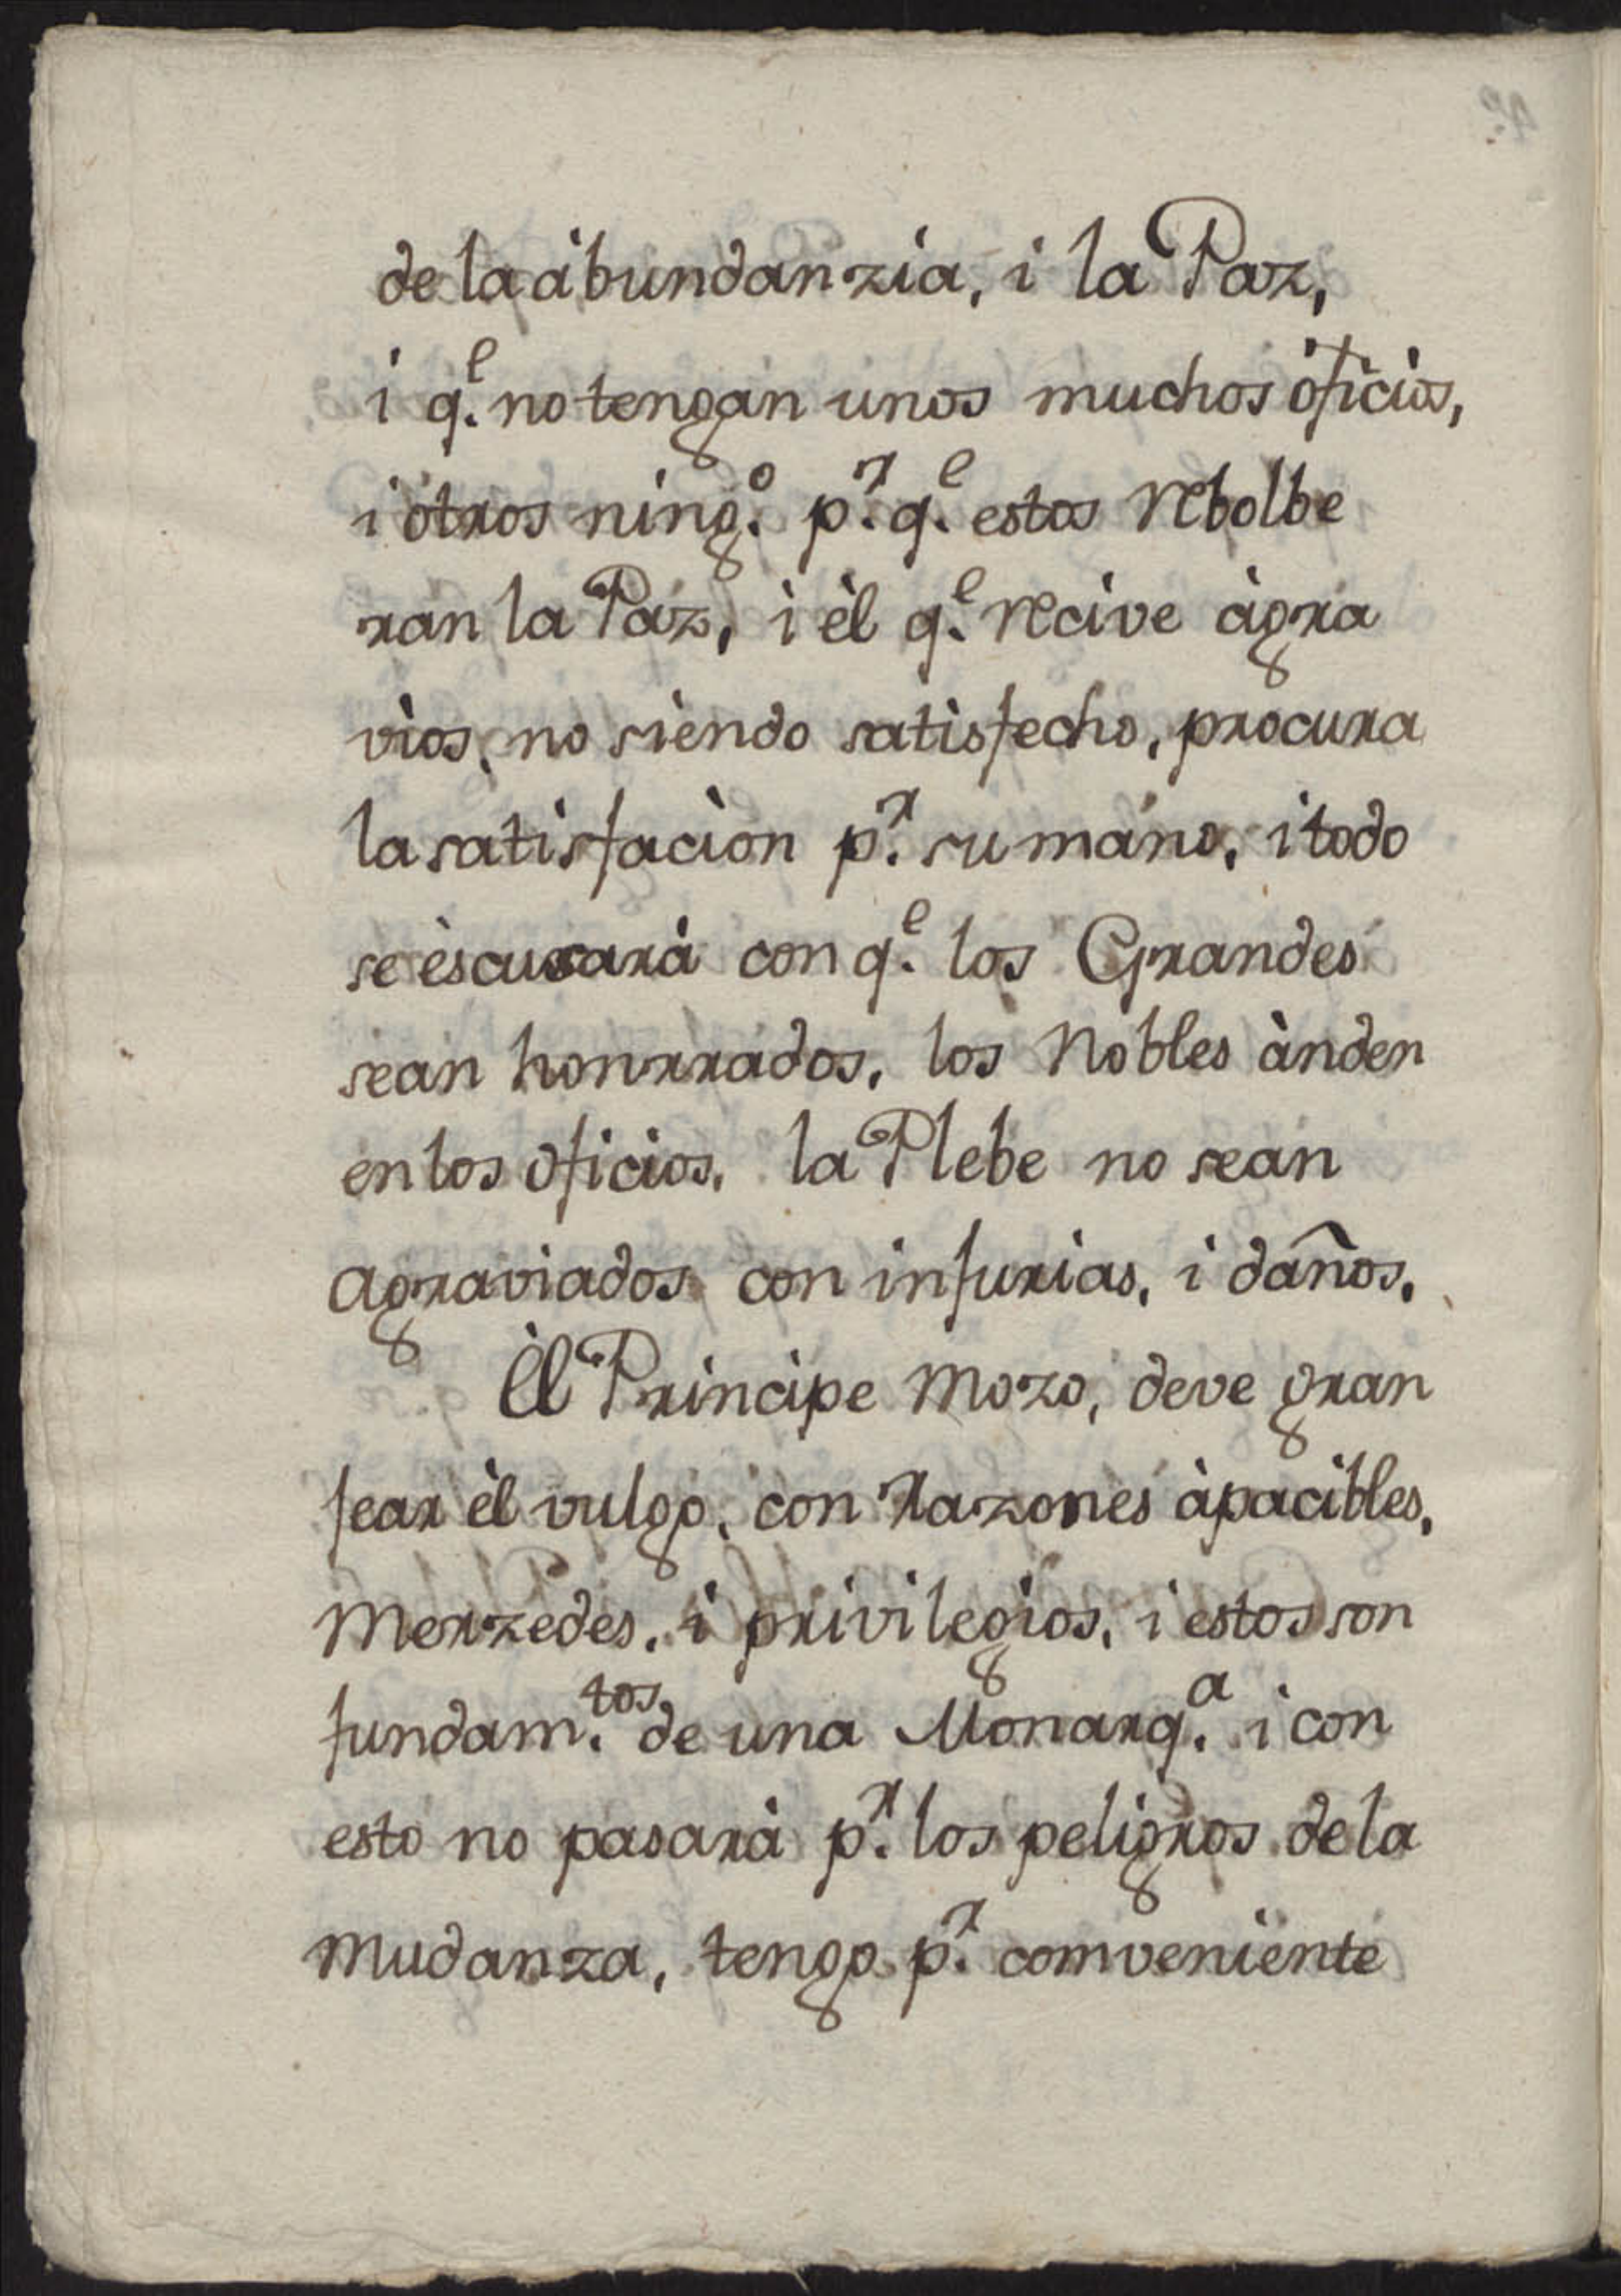 de la àbundanzia, i la Paz,
i q.ᵉ no tengan unos muchos òficios,
i òtros ning.º p.ʳ q.ᵉ estos rebolbe
ran la Paz, i èl q.ᵉ recive àgra
vios, no siendo satisfecho, procura
la satisfaciòn p.ʳ su mano, i todo
se èscusarà con q.ᵉ los Grandes
sean honrrados, los Nobles ànden
en los oficios, la Plebe no sean
agraviados con injurias, i daños.
Èl Principe mozo, deve gran
jear èl vulgo, con razones àpacibles,
merzedes, i privilegios, i estos son
fundam.ᵗᵒˢ de una Monarq.ᵃ i con
esto no pasarà p.ʳ los peligros de la
mudanza, tengo p.ʳ comveniente